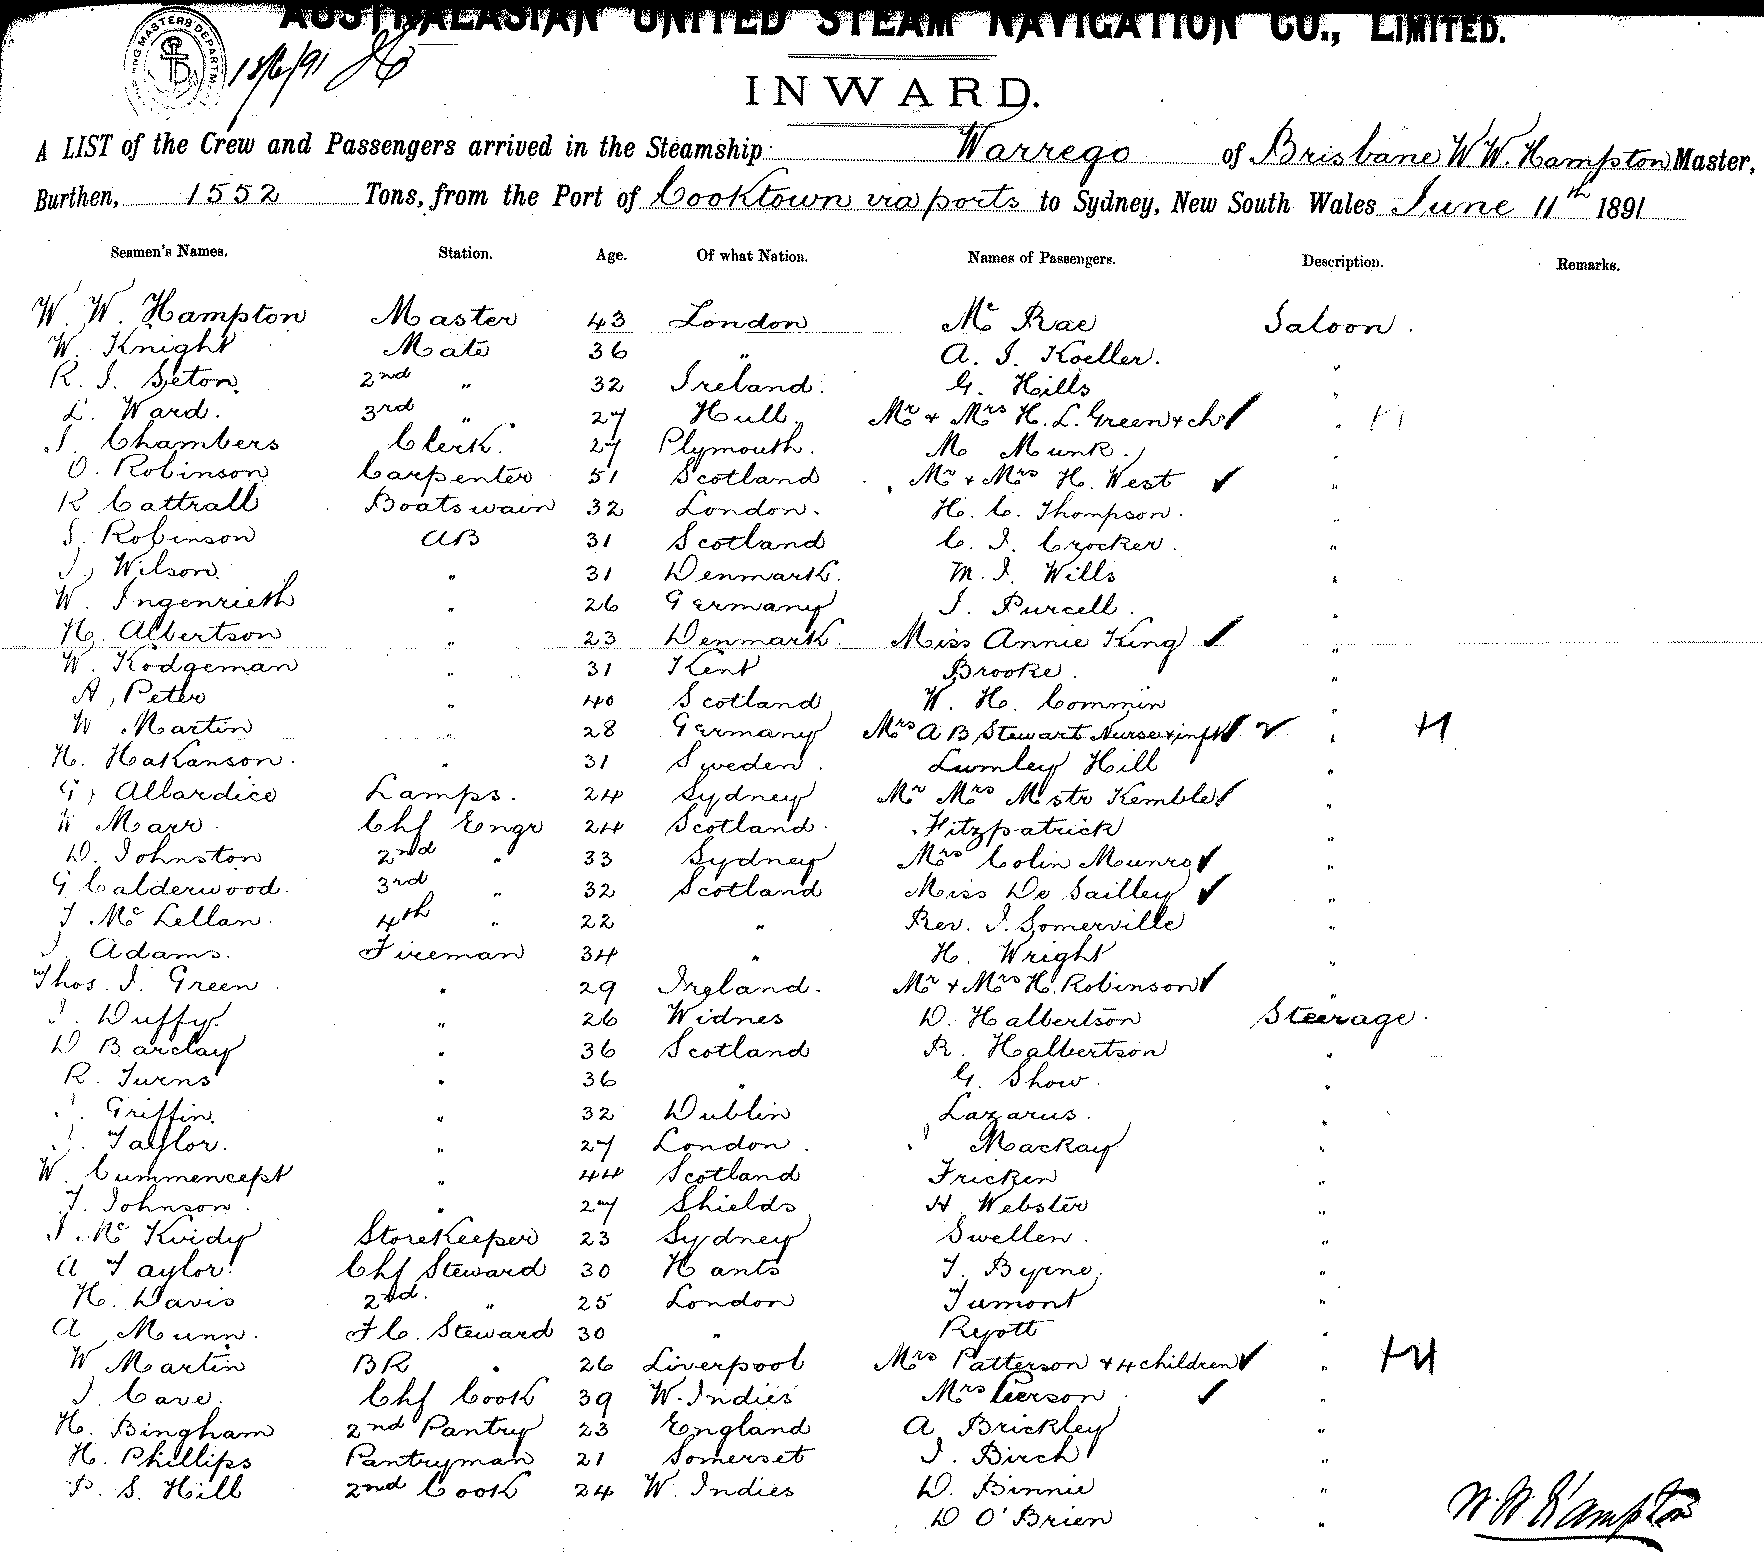 AUSTRALASIAN UNITED STEAM NAVIGATION CO., LIMITED.
MASTERS DEPARTM
18/6/91
INWARD.
A LIST of the Crew and Passengers arrived in the Steamship Warrego of Brisbane W W. Hampton Master,
Burthen, 1552 Tons, from the Port of Cooktown via ports to Sydney, New South Wales June 11th 1891
Seamen's Names. Station. Age. Of what Nation. Names of Passengers. Description. Remarks.
W. W. Hampton Master 43 London Mc Rae Saloon.
W. Knight Mate 36 " A. J. Koeller. "
R. J. Seton. 2nd " 32 Ireland. G. Hills "
L. Ward. 3rd " 27 Hull. Mr + Mrs H. L. Green + ch "
J. Chambers Clerk. 27 Plymouth. M Munk. "
O. Robinson Carpenter 51 Scotland Mr + Mrs H. West ✓ "
R Cattrall Boatswain 32 London. H. C. Thompson. "
J. Robinson AB 31 Scotland C. J. Crocker. "
J. Wilson. " 31 Denmark. M. J. Wills "
W. Ingenrieth " 26 Germany J. Purcell. "
H. Albertson " 23 Denmark. Miss Annie King ✓ "
W. Kodgeman " 31 Kent Brooke. "
A. Peter " 40 Scotland W. H. Commin "
W. Martin " 28 Germany Mrs A B Stewart Nurse + inft ✓ "
H. Hakanson. " 31 Sweden. Lumley Hill "
G. Allardice Lamps. 24 Sydney Mr Mrs Mstr Kemble ✓ "
W Marr. Chf Engr 24 Scotland. Fitzpatrick "
D. Johnston 2nd " 33 Sydney Mrs Colin Munro ✓ "
G Calderwood. 3rd " 32 Scotland Miss De Sailley ✓ "
J. Mc Lellan. 4th " 22 " Rev. J. Somerville "
J. Adams. Fireman 34 " H. Wright "
Thos. J. Green " 29 Ireland. Mr + Mrs H. Robinson ✓ "
J. Duffy. " 26 Widnes D. Halbertson Steerage.
D Barclay " 36 Scotland R. Halbertson "
R. Turns " 36 " G. Show. "
J. Griffin. " 32 Dublin Lazarus. "
J. Taylor. " 27 London. Mackay "
W. Cummencept " 44 Scotland Fricken "
T. Johnson. " 27 Shields H Webster "
J. Mc Kvidy Storekeeper 23 Sydney Swellen. "
A Taylor. Chf Steward 30 Hants T. Byrne. "
H. Davis 2nd. " 25 London Tumont "
A Munn. F C. Steward 30 " Ryott "
W Martin BR " 26 Liverpool Mrs Patterson + 4 children ✓ "
J. Cave. Chf Cook 39 W. Indies Mrs Pierson ✓ "
H. Bingham 2nd Pantry 23 England A. Brickley "
H. Phillips Pantryman 21 Somerset J. Birch "
P. S. Hill 2nd Cook 24 W. Indies D. Binnie "
D O'Brien "
W. W. Hampton